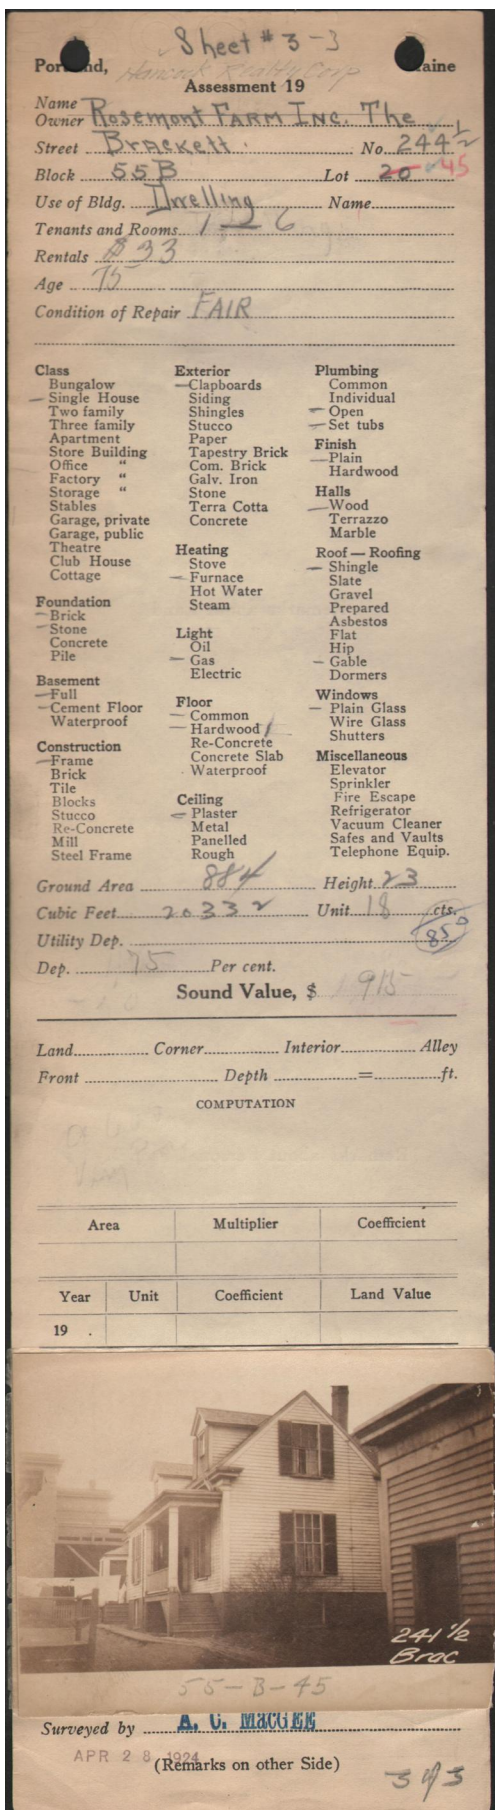 Sheet # 3-3
Portland, Maine
Hancock Realty Corp
Assessment 19
Name
Owner Rosemont Farm Inc. The
Street Brackett. No. 244 1/2
Block 55B Lot 20 45
Use of Bldg. Dwelling Name
Tenants and Rooms 1 - 6
Rentals $33
Age 75
Condition of Repair FAIR
Class
Bungalow
Single House
Two family
Three family
Apartment
Store Building
Office "
Factory "
Storage "
Stables
Garage, private
Garage, public
Theatre
Club House
Cottage
Foundation
Brick
Stone
Concrete
Pile
Basement
Full
Cement Floor
Waterproof
Construction
Frame
Brick
Tile
Blocks
Stucco
Re-Concrete
Mill
Steel Frame
Exterior
Clapboards
Siding
Shingles
Stucco
Paper
Tapestry Brick
Com. Brick
Galv. Iron
Stone
Terra Cotta
Concrete
Heating
Stove
Furnace
Hot Water
Steam
Light
Oil
Gas
Electric
Floor
Common
Hardwood 1
Re-Concrete
Concrete Slab
Waterproof
Ceiling
Plaster
Metal
Panelled
Rough
Plumbing
Common
Individual
Open
Set tubs
Finish
Plain
Hardwood
Halls
Wood
Terrazzo
Marble
Roof — Roofing
Shingle
Slate
Gravel
Prepared
Asbestos
Flat
Hip
Gable
Dormers
Windows
Plain Glass
Wire Glass
Shutters
Miscellaneous
Elevator
Sprinkler
Fire Escape
Refrigerator
Vacuum Cleaner
Safes and Vaults
Telephone Equip.
Ground Area 884 Height 23
Cubic Feet 20332 Unit 18 cts.
Utility Dep. 850
Dep. 75 Per cent.
Sound Value, $ 915
Land Corner Interior Alley
Front Depth = ft.
COMPUTATION
Area Multiplier Coefficient
Year Unit Coefficient Land Value
19 .
241 1/2
Brac
55-B-45
Surveyed by A. C. MacGEE
APR 28 1924
(Remarks on other Side)
3 of 3